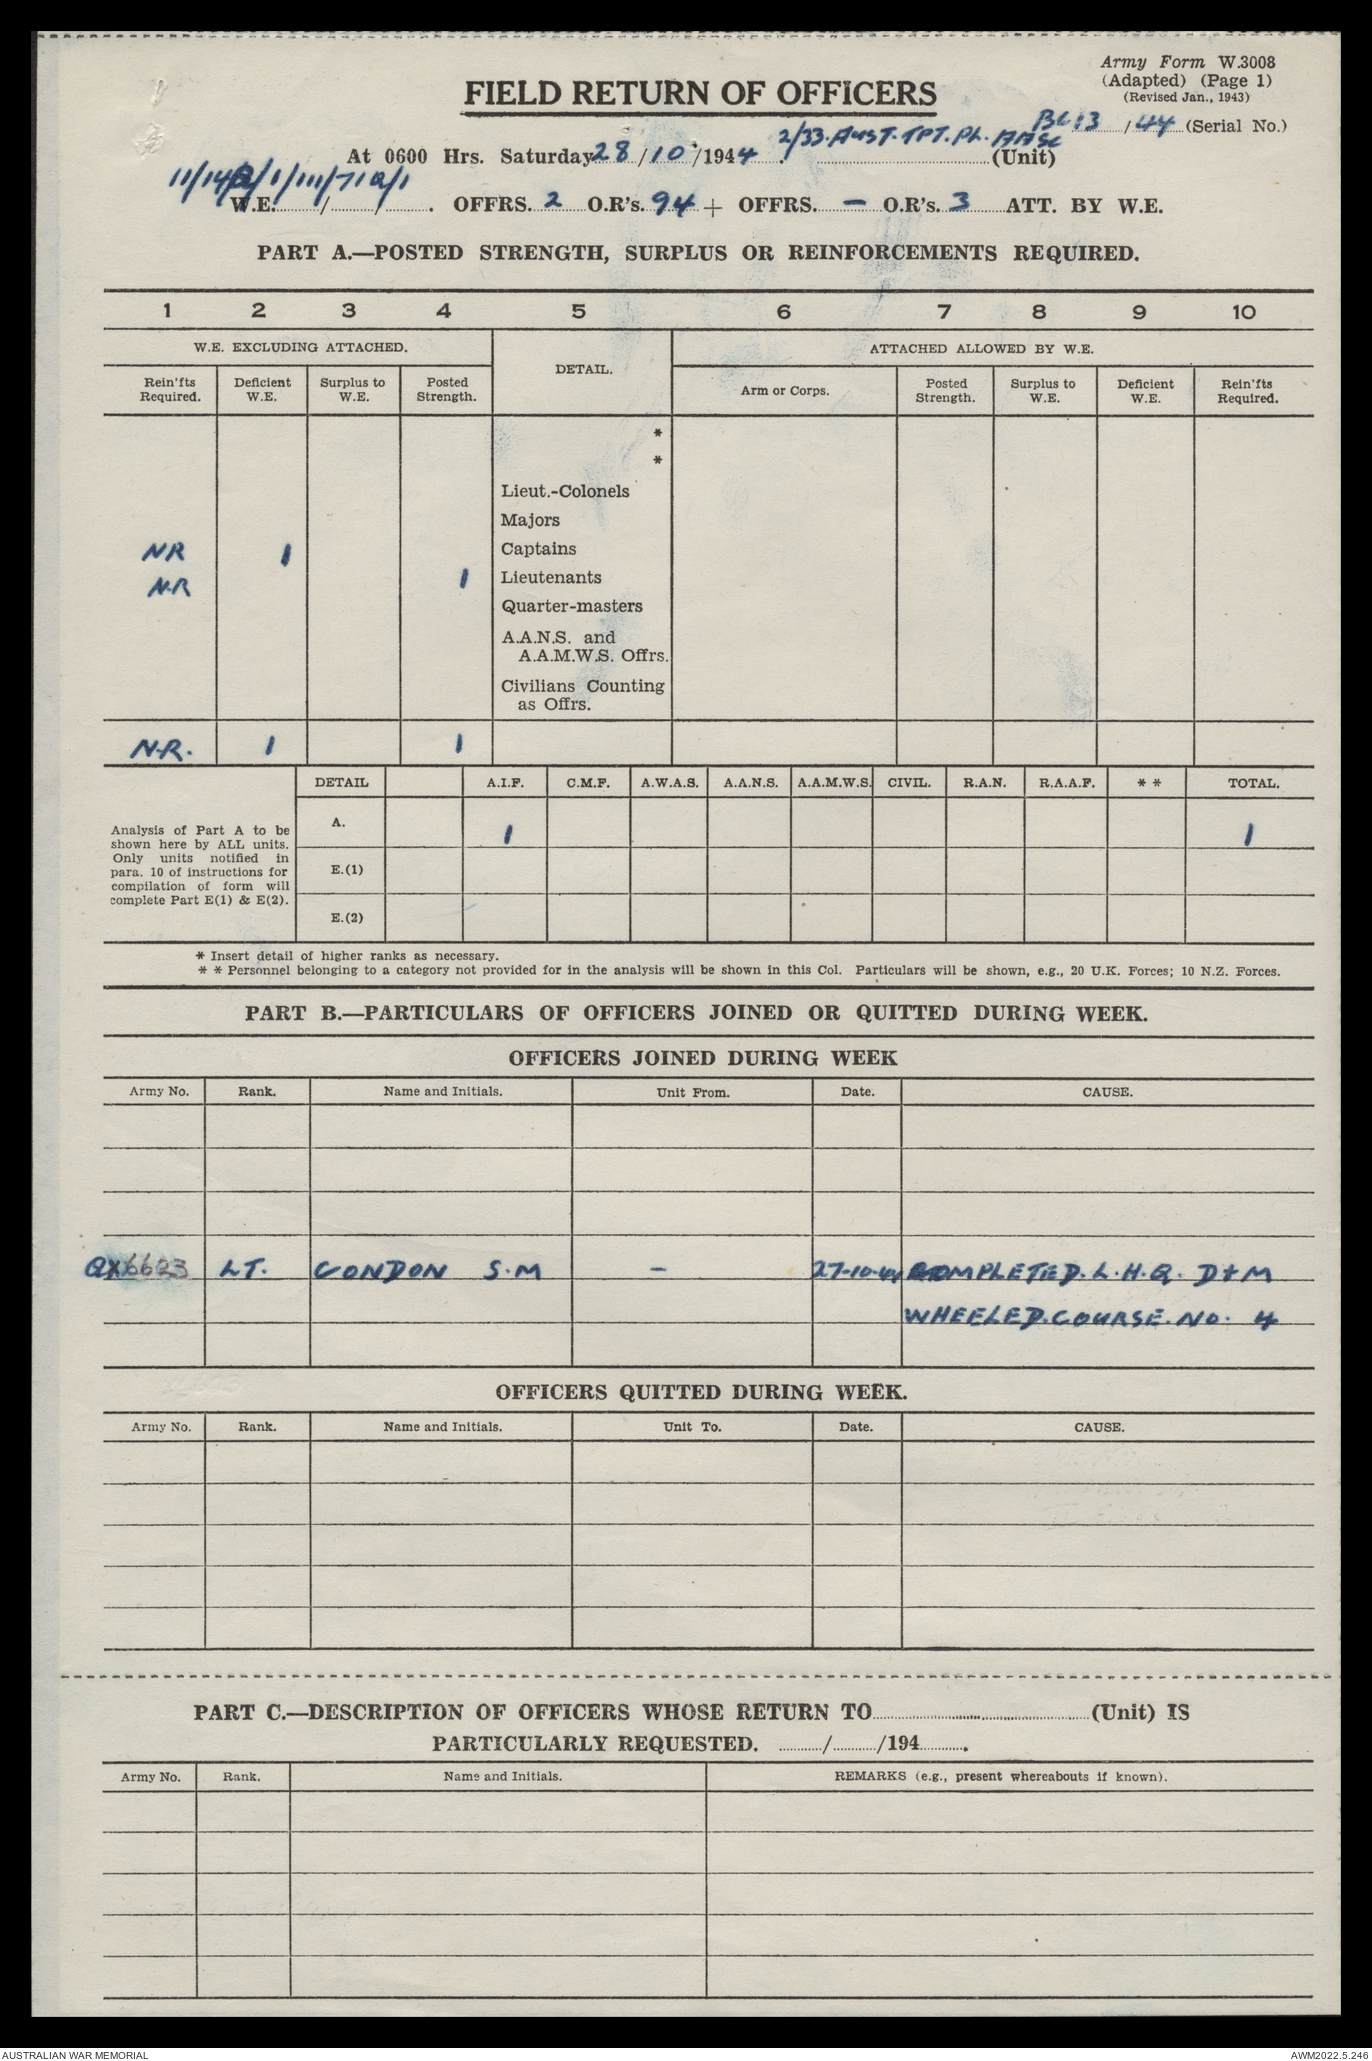 Army Form W.3008
(Adapted) (Page 1)
(Revised Jan., 1943)
FIELD RETURN OF OFFICERS
BC13 / 44 (Serial No.)
At 0600 Hrs. Saturday 28 / 10 /1944. 2/33. AUST. TPT. PL. AASC (Unit)
W.E. / / . OFFRS. 2 O.R's. 94 + OFFRS. — O.R's. 3 ATT. BY W.E.
PART A.—POSTED STRENGTH, SURPLUS OR REINFORCEMENTS REQUIRED.
1 2 3 4 5 6 7 8 9 10
W.E. EXCLUDING ATTACHED. DETAIL. ATTACHED ALLOWED BY W.E.
Rein'fts Required. Deficient W.E. Surplus to W.E. Posted Strength. Arm or Corps. Posted Strength. Surplus to W.E. Deficient W.E. Rein'fts Required.
*
*
Lieut.-Colonels
Majors
NR 1 Captains
N.R 1 Lieutenants
Quarter-masters
A.A.N.S. and
A.A.M.W.S. Offrs.
Civilians Counting
as Offrs.
N.R. 1 1
DETAIL A.I.F. C.M.F. A.W.A.S. A.A.N.S. A.A.M.W.S. CIVIL. R.A.N. R.A.A.F. * * TOTAL.
Analysis of Part A to be
shown here by ALL units.
Only units notified in
para. 10 of instructions for
compilation of form will
complete Part E(1) & E(2).
A. 1 1
E.(1)
E.(2)
* Insert detail of higher ranks as necessary.
* * Personnel belonging to a category not provided for in the analysis will be shown in this Col. Particulars will be shown, e.g., 20 U.K. Forces; 10 N.Z. Forces.
PART B.—PARTICULARS OF OFFICERS JOINED OR QUITTED DURING WEEK.
OFFICERS JOINED DURING WEEK
Army No. Rank. Name and Initials. Unit From. Date. CAUSE.
QX6623 LT. CONDON S.M — 27-10-44 COMPLETED. L.H.Q. D+M
WHEELED. COURSE. NO. 4
OFFICERS QUITTED DURING WEEK.
Army No. Rank. Name and Initials. Unit To. Date. CAUSE.
PART C.—DESCRIPTION OF OFFICERS WHOSE RETURN TO (Unit) IS
PARTICULARLY REQUESTED. / /194 .
Army No. Rank. Name and Initials. REMARKS (e.g., present whereabouts if known).
AUSTRALIAN WAR MEMORIAL AWM2022.5.246